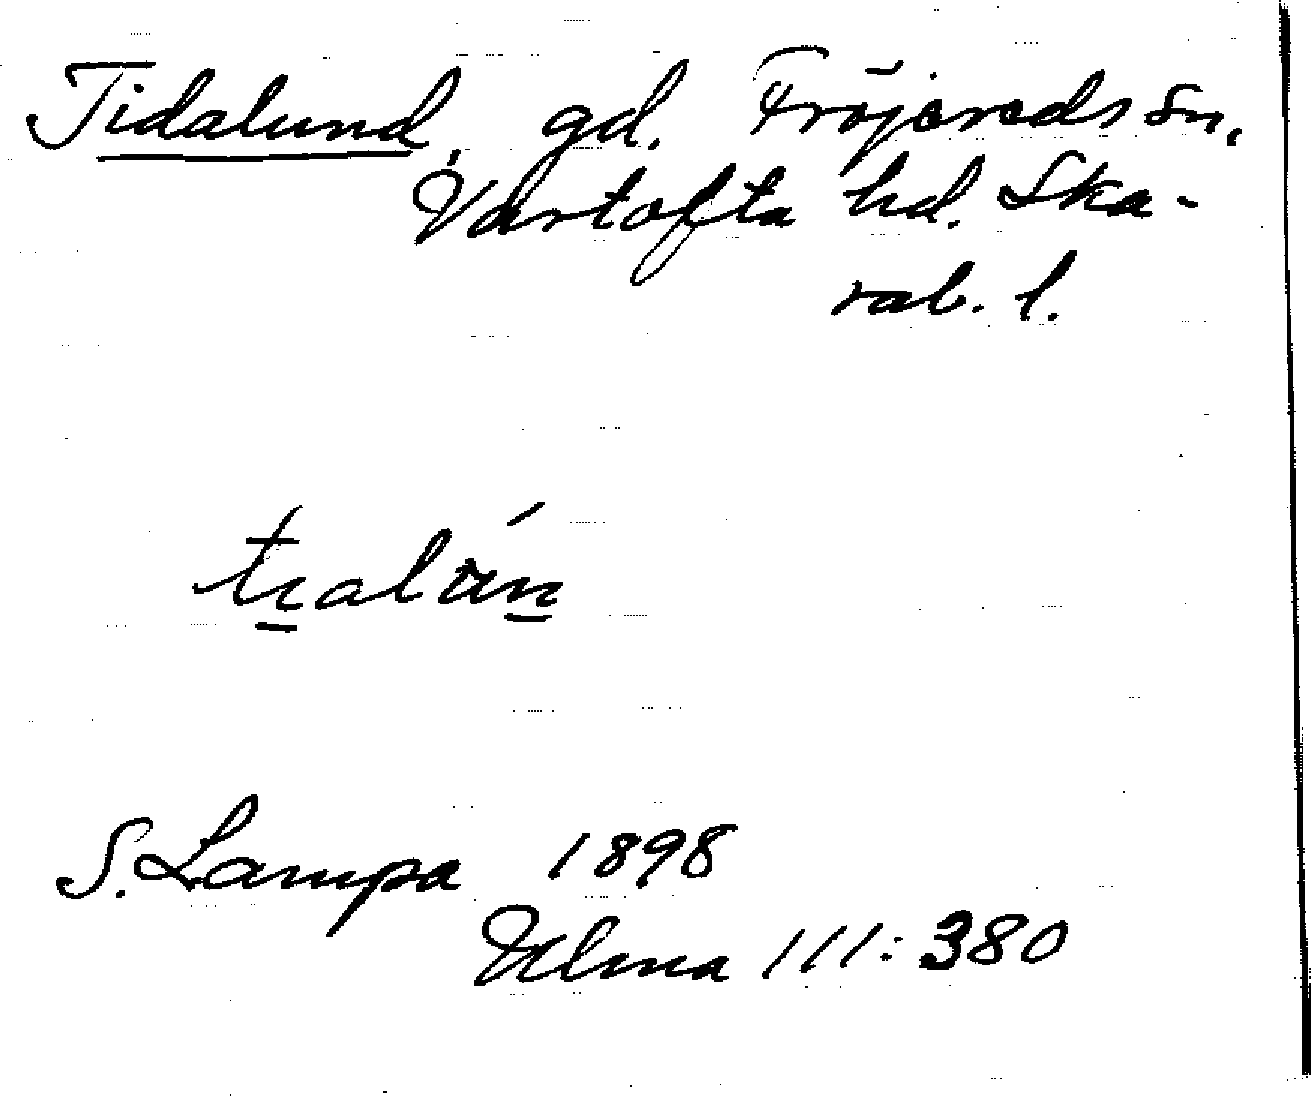 Tidalund, gd. Fröjereds sn,
Vartofta hd. Ska-
rab. l.
S. Lampa 1898
Ulma 111:380